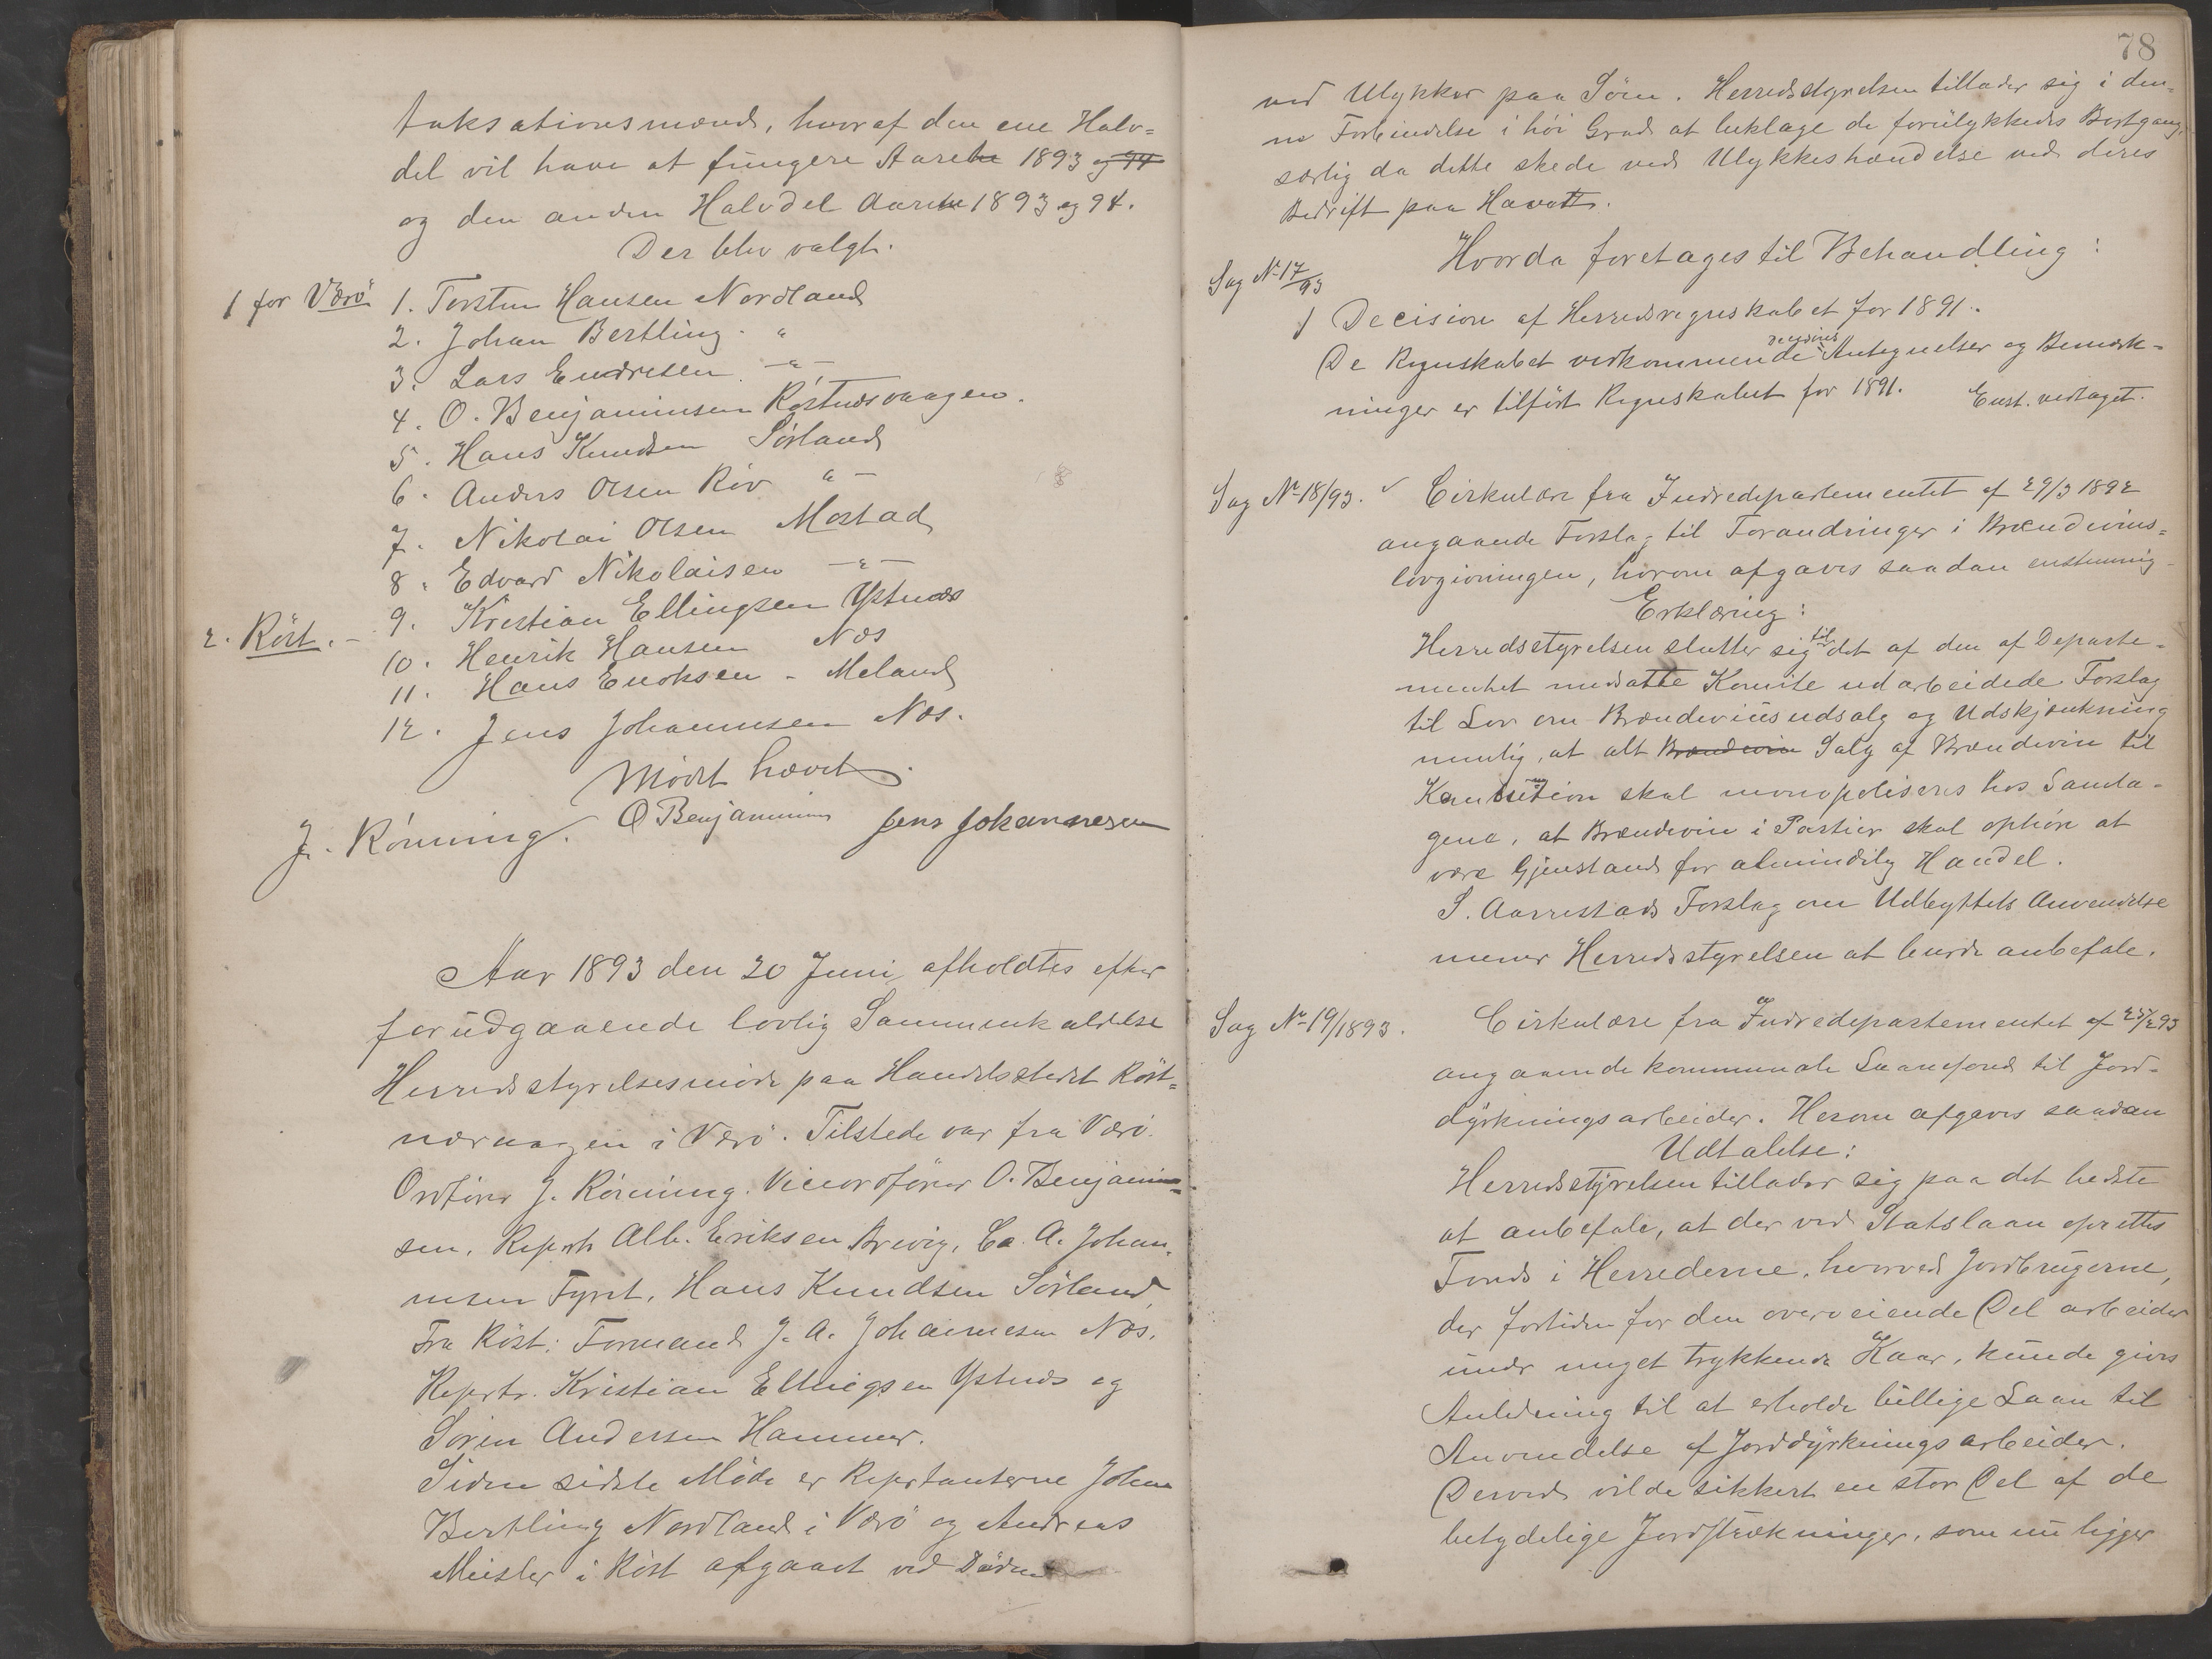 taksationsmænd, hvoraf den ene Halv=
del vil have at fungere Aarene 1893 og 94
og den anden Halvdel Aarene 1893 og 94.
Der blev valgt.
1 for Værö 1. Torsten Hansen Nordland
2. Johan Bertling. "
3. Lars Endresen. —"—
4. O. Benjaminsen Röstnæsvaagen.
5. Hans Knudsen Sörland
6. Anders Olsen Röv "—
7. Nikolai Olsen Mostad
8. Edvard Nikolaisen —"—
2. Röst. — 9. Kristian Ellingsen Ystnæs
10. Henrik Hansen Næs
11. Hans Enoksen - Meland
12. Jens Johannesen Næs.
Mödet hævet.
J. Rönning. O Benjaminsen Jens Johannesen
Aar 1893 den 20 Juni afholdtes efter
forudgaaende lovlig Sammenkaldelse
Herredsstyrelsesmöde paa Handelsstedet Röst=
nævaagen i Værö. Tilstede var fra Værö.
Ordförer J. Rönning. Viceordförer O. Benjamin=
sen, Reprts Alb. Eriksen Brevig, Ca. A. Johan=
nesen Fyret, Hans Knudsen Sörland,
Fra Röst: Formand J. A. Johannesen Næs.
Reprtr. Kristian Ellingsen Ystnæs og
Sören Andersen Hammer.
Siden sidste Möde er Reprtanterne Johan
Bertling Nordland i Værö og Andreas
Meisler i Röst afgaaet ved Döden
78
ved Ulykker paa Söen. Herredsstyrelsen tillader sig i den=
ne Forbindelse i höi Grad at beklage de forulykkedes Bortgang,
særlig da dette skede ved Ulykkeshændelse ved deres
Bedrift paa Havet.
Hvorda foretages til Behandling:
Sag No 17/93
1 Decision af Herredsregnskabet for 1891.
deciderede
De Regnskabet vedkommende Antegnelser og Bemærk=
ninger er tilfört Regnskabet for 1891. Enst. vedtaget.
Sag No 18/93. Cirkulære fra Indredepartementet af 29/3 1892
angaaende Forslag til Forandringer i Brændevins=
lovgivningen, hvorom afgaves saadan enstemmig
Erklæring:
Herredsstyrelsen slutter sig til det af den af Departe=
mentet nedsatte Komite udarbeidede Forslag
til Lov om Brændevinsudsalg og Udskjænkning
nemlig, at alt Brændevin Salg af Brændevin til
skal monopoliseres hos Samla=
gene, at Brændevin i Partier skal ophöre at
være Gjenstand for almindelig Handel.
S. Aarrestads Forslag om Udbyttets Anvendelse
mener Herredsstyrelsen at burde anbefale.
Sag No 19/1893. Cirkulære fra Indredepartementet af 25/2 93
angaaende kommunale Laanefond til Jord-
dyrkningsarbeider. Herom afgaves saadan
Udtalelse:
Herredsstyrelsen tillader sig paa det bedste
at anbefale, at der ved Statslaan oprettes
Fonds i Herrederne, hvorved Jordbrugerne,
der fortiden for den overveiende Del arbeider
under meget trykkende Kaar, kunde gives
Anledning til at erholde billige Laan til
Anvendelse af Jorddyrkningsarbeider.
Derved vilde sikkert en stor Del af de
betydelige Jordstrækninger, som nu ligger